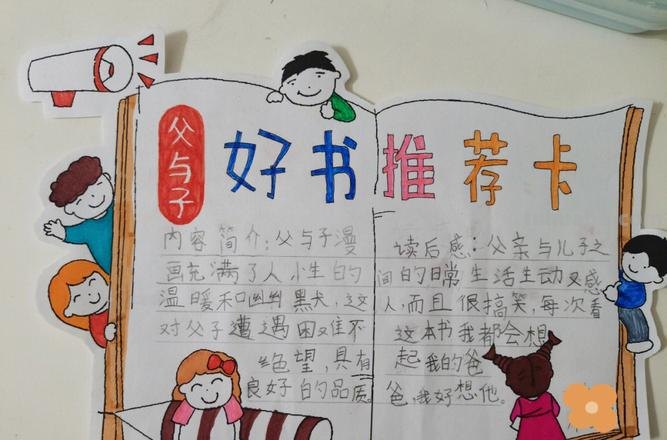 父与子
好书推荐卡
内容简介:父与子漫
画充满了人小生的
温暖和幽幽默犬,这又
对父子遭遇困难不
绝望,具有
良好的品质。
读后感:父亲与儿子之
间的日常生活生动又感
人,而且很搞笑,每次看
这本书我都会想
起我的爸
爸,我好想他。